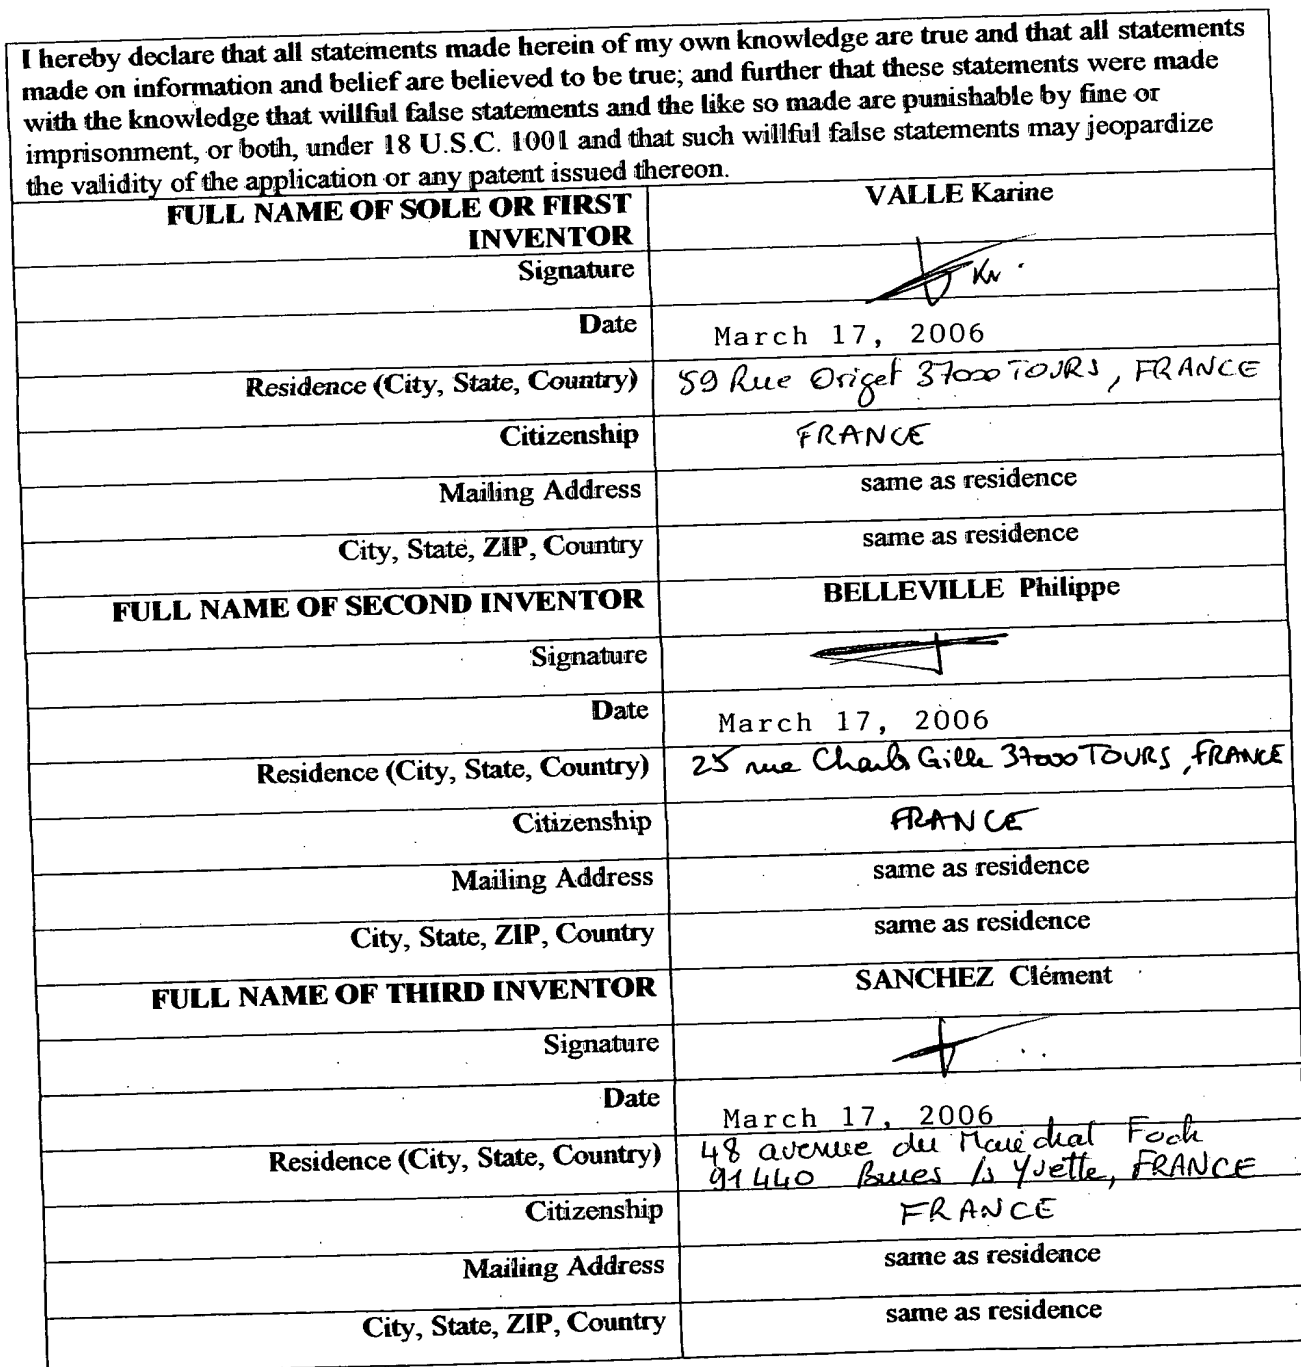 I hereby declare that all statements made herein of my own knowledge are true and that all statements
made on information and belief are believed to be true; and further that these statements were made
with the knowledge that willful false statements and the like so made are punishable by fine or
imprisonment, or both, under 18 U.S.C. 1001 and that such willful false statements may jeopardize
the validity of the application or any patent issued thereon.
FULL NAME OF SOLE OR FIRST
INVENTOR
VALLE Karine
Signature
Date
March 17, 2006
Residence (City, State, Country)
59 Rue Origet 37000 TOURS, FRANCE
Citizenship
FRANCE
Mailing Address
same as residence
City, State, ZIP, Country
same as residence
FULL NAME OF SECOND INVENTOR
BELLEVILLE Philippe
Signature
Date
March 17, 2006
Residence (City, State, Country)
25 rue Charles Gille 37000 TOURS, FRANCE
Citizenship
FRANCE
Mailing Address
same as residence
City, State, ZIP, Country
same as residence
FULL NAME OF THIRD INVENTOR
SANCHEZ Clément
Signature
Date
March 17, 2006
Residence (City, State, Country)
48 avenue du Maréchal Foch
91440 Bures /s Yvette, FRANCE
Citizenship
FRANCE
Mailing Address
same as residence
City, State, ZIP, Country
same as residence